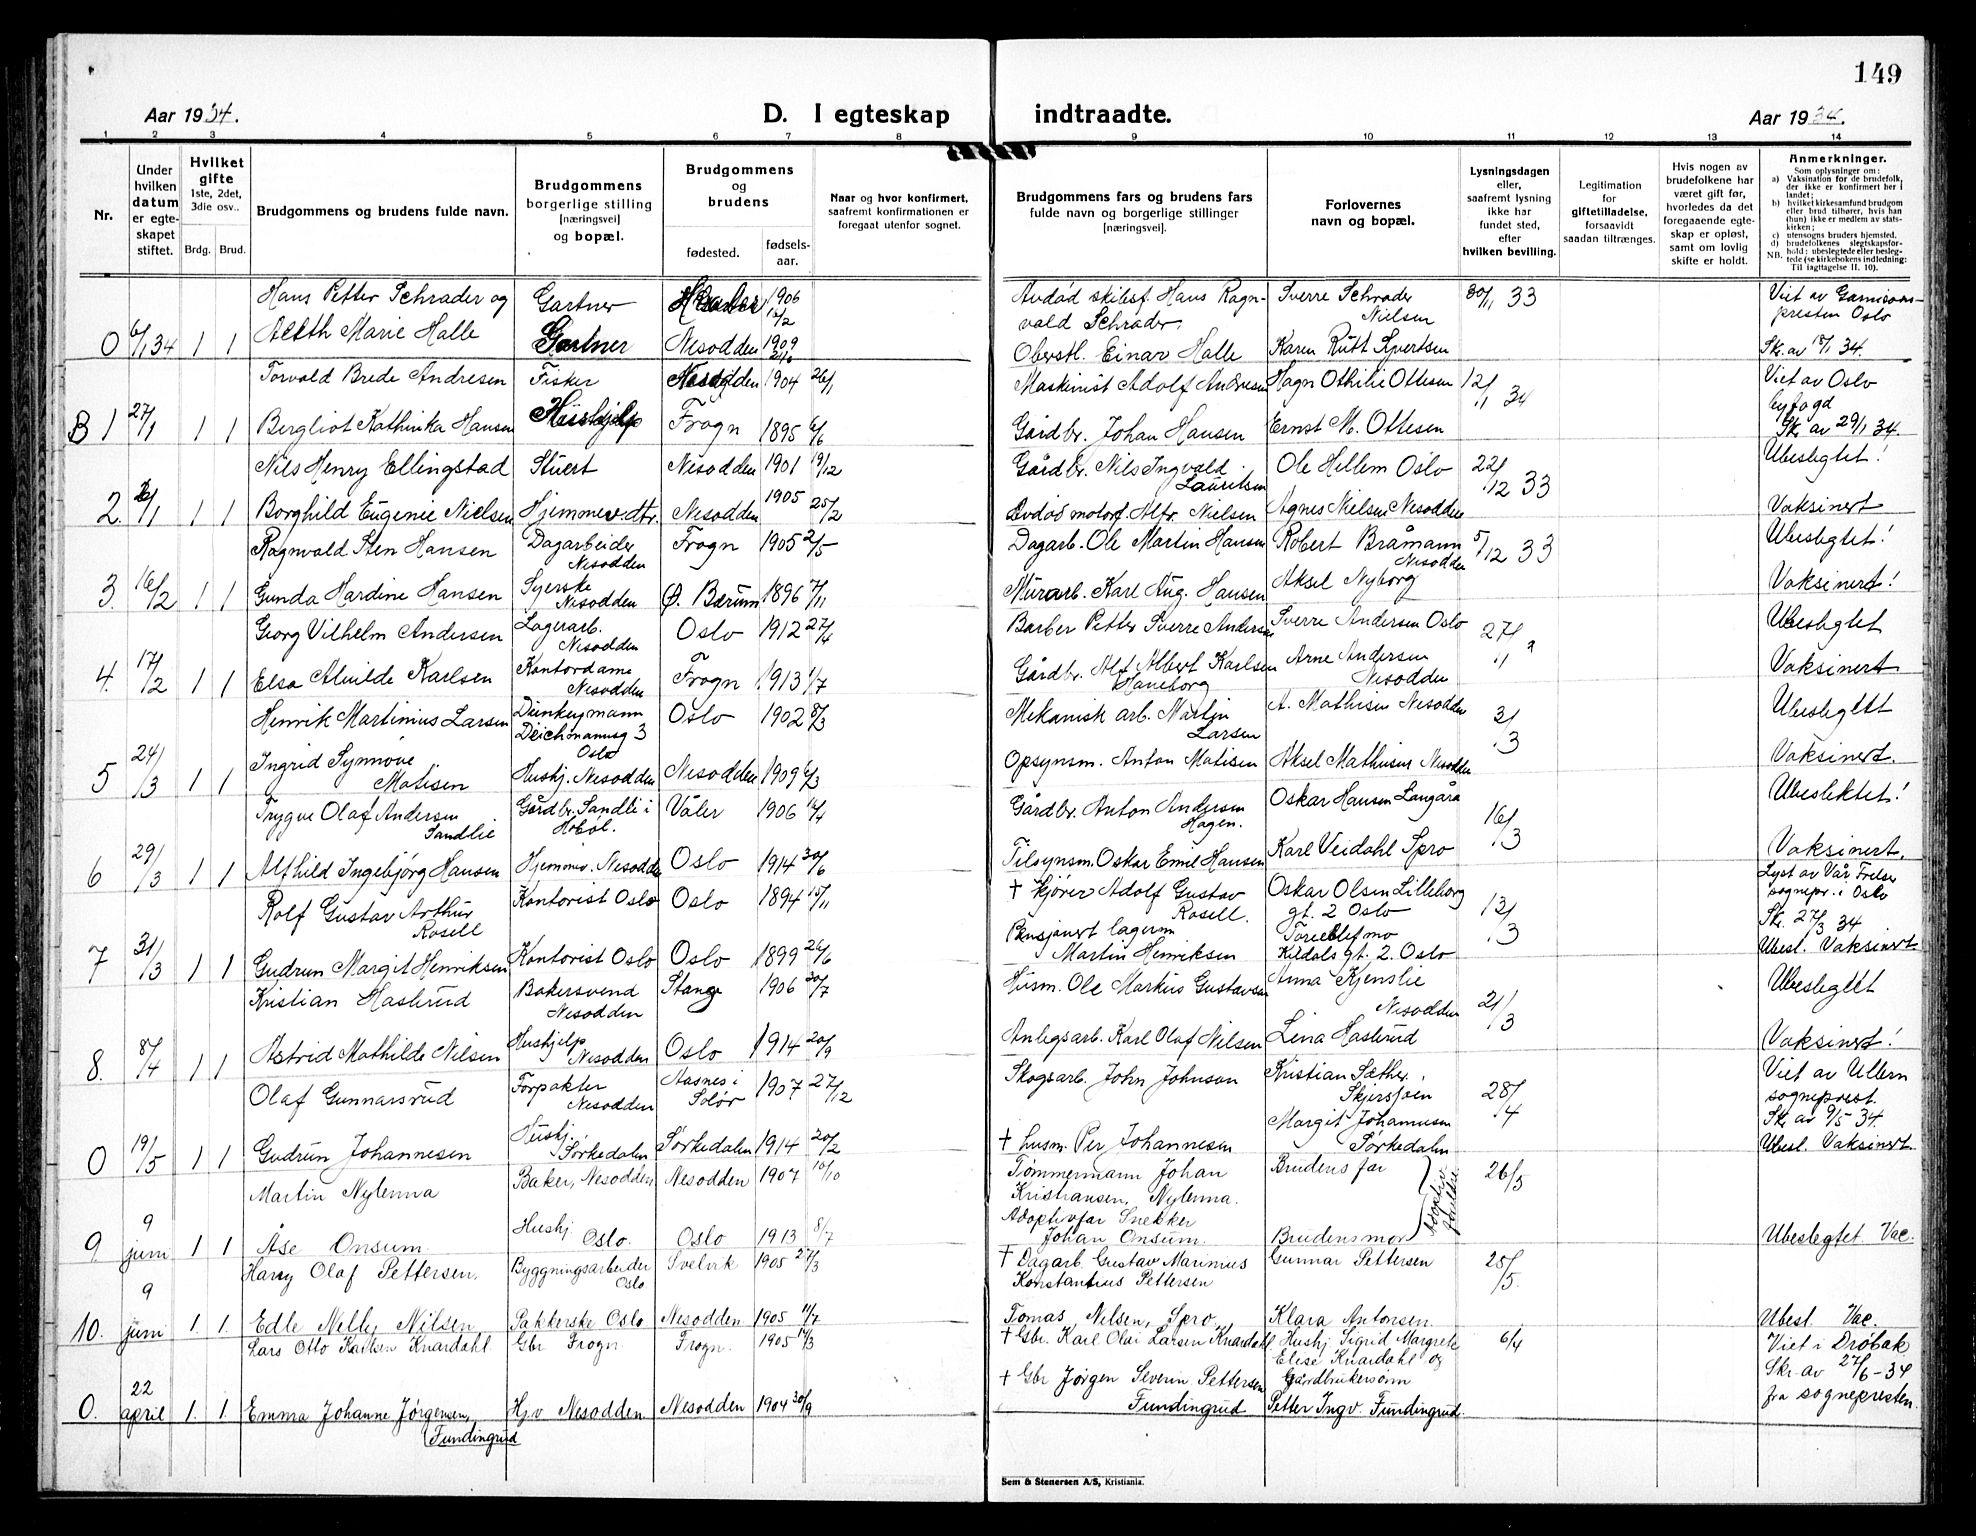 149
Aar 1934.
D. I egteskap indtraadte.
Aar 1934.
1 2 3 4 5 6 7 8 9 10 11 12 13 14
Nr.
Under hvilken datum er egteskapet stiftet.
Hvilket gifte 1ste, 2det, 3die osv..
Brdg. Brud.
Brudgommens og brudens fulde navn.
Brudgommens borgerlige stilling [næringsvei] og bopæl.
Brudgommens og brudens
fødested. fødsels-aar.
Naar og hvor konfirmert, saafremt konfirmationen er foregaat utenfor sognet.
Brudgommens fars og brudens fars fulde navn og borgerlige stillinger [næringsvei].
Forlovernes navn og bopæl.
Lysningsdagen eller, saafremt lysning ikke har fundet sted, efter hvilken bevilling.
Legitimation for giftetilladelse, forsaavidt saadan tiltrænges.
Hvis nogen av brudefolkene har været gift før, hvorledes da det foregaaende egteskap er opløst, samt om lovlig skifte er holdt.
Anmerkninger.
Som oplysninger om:
a) Vaksination for de brudefolk, der ikke er konfirmert her i landet;
b) hvilket kirkesamfund brudgom eller brud tilhører, hvis han (hun) ikke er medlem av statskirken;
c) utensogns bruders hjemsted.
d) brudefolkenes slegtskapsforhold: ubeslegtede eller beslegtede (se kirkebokens indledning: Til iagttagelse II. 10).
NB.
Hans Petter Schrader og Gartner 1906 12/2 Avdød skibsf. Hans Ragnvald Schrader. Sverre Schrader Nielsen 30/11 33 Viet av Garnisonspresten Oslo
0 6/1 34 1 1 Marie Halle Gartner Nesodden 1909 Oberstl. Einar Halle Karen Rutt Sk. av 34.
Torvald Brede Andresen Fisker Nesodden 1904 26/1 Maskinist Adolf Andresen Hagn Othilie Ottesen 12/1 34 Viet av Oslo byfogd
B 1 27/1 1 1 Bergliot Kathinka Hansen Hushjelp Frogn 1895 6/6 Gårdbr. Johan Hansen Ernst M. Ottesen Sk av 29/1 34.
Nils Henry Ellingstad Stuert Nesodden 1901 19/12 Gårdbr. Nils Ingvald Lauritsen Ole Hellem Oslo 22/12 33 Ubeslegtet!
2. 1 1 Borghild Eugenie Nielsen Hjemmev. dtr. Nesodden 1905 25/2 Avdød motorf. Alfr. Nielsen Agnes Nielsen Nesodden Vaksinert
Ragnvald Sten Hansen Dagarbeider Nesodden Frogn 1905 2/5 Dagarb. Ole Martin Hansen Robert Bråmann Nesodden 5/12 33 Ubeslegtet!
3. 16/2 1 1 Gunda Hardine Hansen Syerske Nesodden Ø. Bærum 1896 7/11 Murarb. Karl Aug. Hansen Aksel Nyborg Vaksinert!
Georg Vilhelm Andersen Lagerarb. Nesodden Oslo 1912 27/4 Barber Petter Sverre Andersen Sverre Andersen Oslo 27/1 Ubeslegtet
4. 17/2 1 1 Elsa Alvilde Karlsen Kontordame Nesodden Frogn 1913 1/7 Gårdbr. Alf Albert Karlsen Haneborg Arne Andersen Nesodden Vaksinert
Henrik Martinius Larsen Deichmannsg 3 Oslo Oslo 1902 8/3 Mekanisk arb. Martin Larsen A. Mathisen Nesodden 3/3 Ubeslegtet
5 24/3 1 1 Ingrid Synnøve Matisen Hushj. Nesodden Nesodden 1909 6/3 Opsynsm. Anton Matisen Aksel Mathisen Nesodden Vaksinert.
Trygve Olaf Andersen Sandlie Gårdbr. Sandli i Hobøl. Våler 1906 Gårdbr. Anton Andersen Hagen. Oskar Hansen Langåra 16/3 Ubeslektet!
6 29/3 1 1 Alfhild Ingebjørg Hansen Hjemmev. Nesodden Oslo 1914 30/6 Tilsynsm. Oskar Emil Hansen Karl Veidahl Spro Vaksinert.
Rolf Gustav Arthur Rosell Kontorist Oslo Oslo 1894 15/11 † kjører Adolf Gustav Rosell. Oskar Olsen Lilleborg gt. 2 Oslo 13/3 Lyst av Vår Frelser sognepr. i Oslo Sk. 27/3 34
7 31/3 1 1 Gudrun Margit Henriksen Kontorist Oslo Oslo 1899 26/6 Pensjonert lagerm Martin Henriksen Kildals gt. 2. Oslo Ubesl. Vaksinert
Kristian Haslerud Bakersvend Nesodden Stange 1906 30/7 Husm. Ole Markus Gustavsen Anna Kjenslie Nesodden 21/3 Ubeslegtet
8. 8/4 1 1 Astrid Mathilde Nilsen Hushjelp Nesodden Oslo 1914 20/9 Anlegsarb. Karl Olaf Nilsen Lina Haslerud Vaksinert!
Olaf Gunnarsrud Forpakter Nesodden Aasnes i Solør 1907 27/12 Skogsarb. John Johnsen Kristian Sæther. 28/4 Viet av Ullern sogneprest. Sk av 9/5 34.
0 19/5 1 1 Gudrun Johannesen Hushj. Sørkedalen Sørkedalen 1914 20/2 † husm. Per Johannesen Margit Johannesen Sørkedalen Ubesl. Vaksinert.
Martin Nylenna Baker, Nesodden Nesodden 1907 10/10 Tømmermann Johan Kristiansen, Nylenna. Brudens far 26/5
9. 9 juni 1 1 Åse Onsum Hushj Oslo. Oslo 1913 8/7 Adoptivfar Snekker Johan Onsum. Brudens mor Adoptivforeldre Ubeslegtet. Vac.
Harry Olaf Pettersen. Byggningsarbeider Oslo Svelvik 1905 27/3 † Dagarb. Gustav Marinius Konstantius Pettersen Gunnar Pettersen 25/5.
10. 9 juni 1. 1. Edle Nelly Nilsen Pakkerske Oslo Nesodden 1905 11/7 Tomas Nilsen, Spro Klara Antonsen. Ubesl. Vac.
Lars Otto Karlsen Knardahl. Gbr Frogn Frogn. 1905 † Gbr. Karl Olai Larsen Knardahl Hushj Sigrid Margrete Elise Knardahl og gårdbrukersønn 6/4 Viet i Drøbak Skr. av 27/6-34 fra sognepresten.
0. 22 april 1. 1. Emma Johanne Jørgensen, Fundingrud Hj.v Nesodden Nesodden 1904 30/9 † Gbr Jørgen Severin Pettersen Fundingrud Petter Ingv. Fundingrud.
Sem & Stenersen A/S, Kristiania.